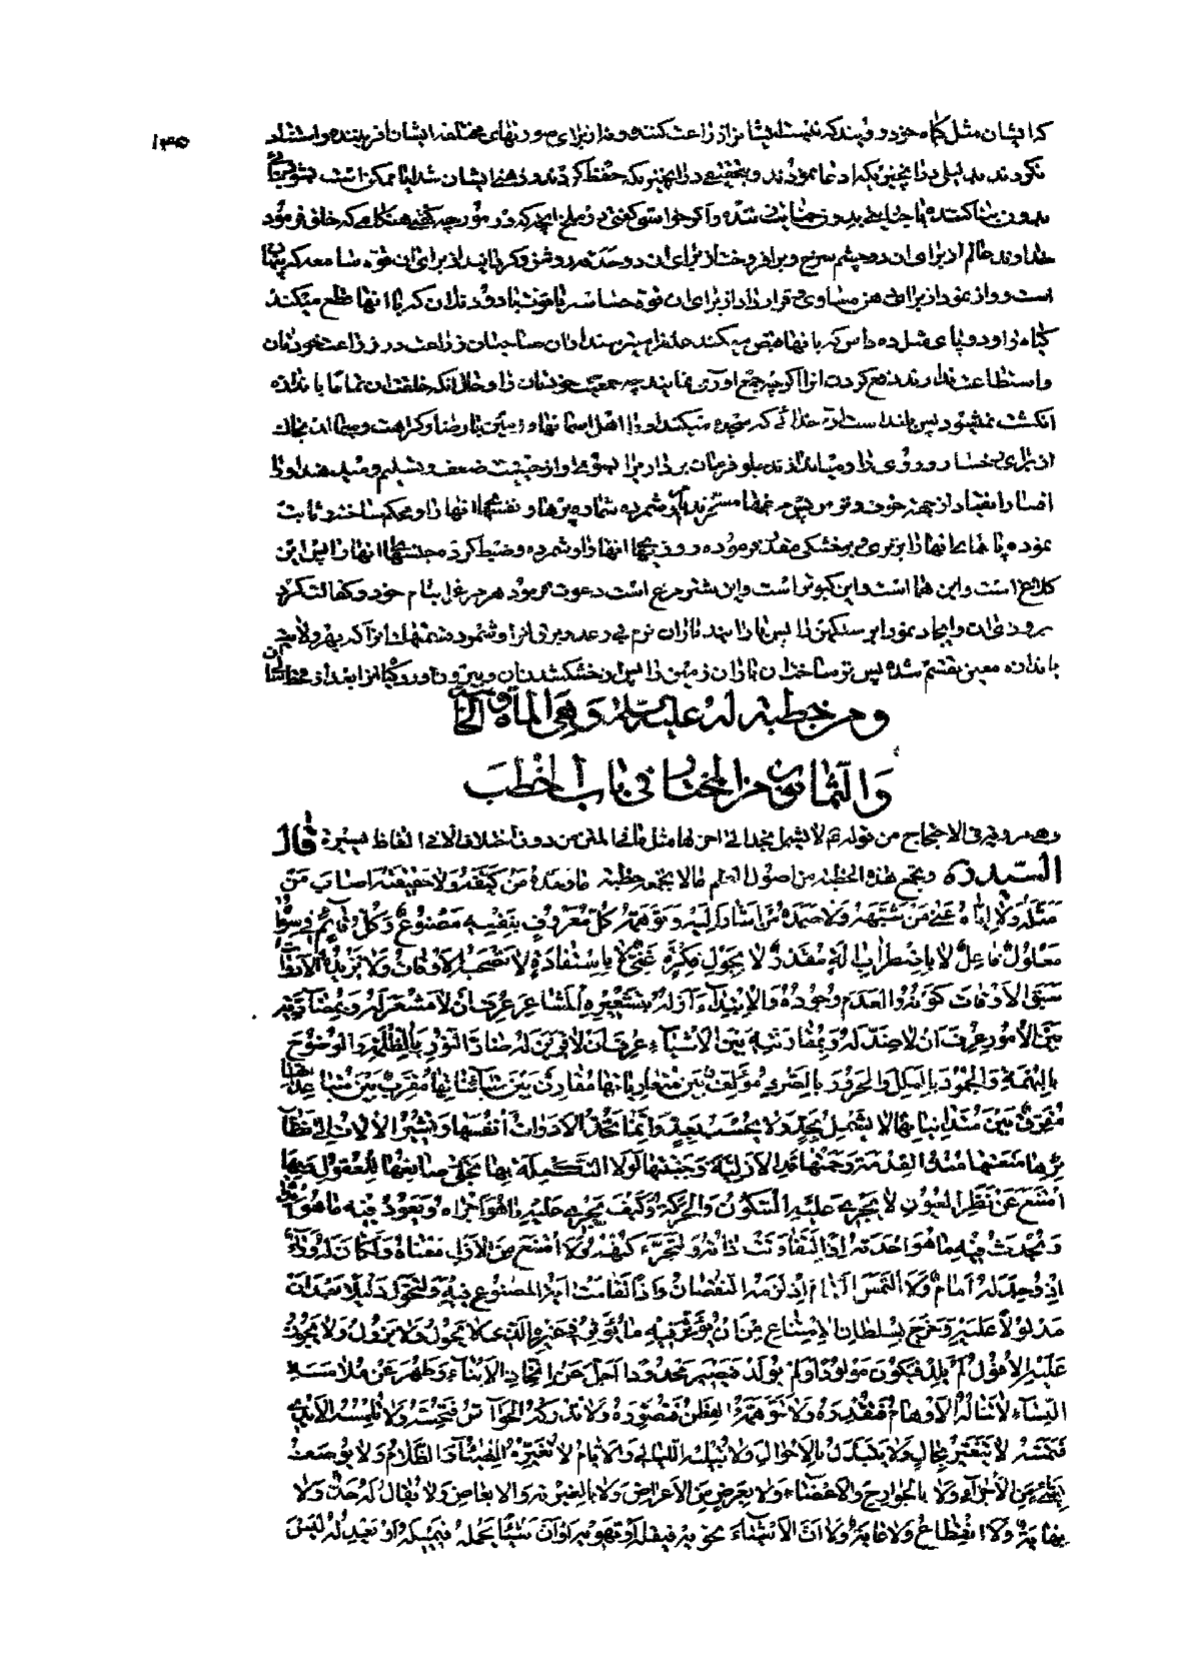 ۱۳۵
که ایشان مثل گیاه خود رویند که نیست ایشانرا زراعت کننده و نه از برای صورتهای مختلفه ایشان آفریننده و استناد
نکردند بدلیلی در آنچیزیکه ادعا نمودند و بتحقیقی در آنچیزیکه حفظ کردند در ذهن ایشان آیا ممکن است
بدون بنا کننده یا جنایتی بدون جنایت کننده و اگر خواستی گفتی در ملخ آنچه که در مورچه گفتی هنگامی که خلق فرمود
خداوند عالم از برای آن دو چشم سرخ و برافروخت از برای آن دو حدقه روشن و گردانید از برای آن قوه سامعه که پنهان
است و واز نمود از برای آن دهن مساوی و قرار داد از برای آن قوه حساسه با قوت با دو دندان که با آنها قطع میکند
گیاه را و دو پای مثل دو داس که با آنها قبض میکند علف را میترسند از آن صاحبان زراعت در زراعت خودشان
و استطاعت ندارند دفع کردن آنرا اگر چه جمع آوری نمایند جمعیت خودشان را و حال آنکه خلقت آن تماما باندازه
انگشت نمیشود پس بلند است آن خدائی که سجده میکند او را اهل آسمانها و زمین با رضا و کراهت
از برای او رخسار و روی را و میاندازند بسوی او از حیثیت ضعف و تسلیم و میدهند او را
نموده پاهای آنها را بر تری و بر خشکی مقدر فرموده روزیهای آنها را و شمرده و ضبط کرده جنسهای آنها را پس این
کلاغ است و این هما است و این کبوتر است و این شتر مرغ است دعوت فرمود هر مرغرا بنام خود و کفالت کرد
بروزی آن و ایجاد نمود ابر سنگین را پس بارانید باران نرم بی رعد و برق آنرا و شمرد قسمتهای آنرا که بهر ولایت
باندازه معین تقسیم شده پس تر ساخت آن باران زمین را پس از خشک شدن آن و بیرون آورد گیاه آنرا بعد از قحطی آن
ومن خطبة له علیه السلام وهی المأة والخامسة
والثمانون من المختار فی باب الخطب
وهی مرویة فی الاحتجاج من قوله ع لا یشمل بحد الی آخرها مثل ما فی المتن من دون اختلاف الا فی الفاظ یسیرة قال
السید ره وتجمع هذه الخطبة من اصول العلم ما لا تجمعه خطبة ما وحده من کیفه ولا حقیقته اصاب من
مثله ولا ایاه عنی من شبهه ولا صمده من اشار الیه وتوهمه کل معروف بنفسه مصنوع وکل قائم فی سواه
معلول فاعل لا باضطراب آلة مقدر لا بجول فکرة غنی لا باستفادة لا تصحبه الاوقات ولا ترفده الادوات
سبق الاوقات کونه والعدم وجوده والابتداء ازله بتشعیره المشاعر عرف ان لا مشعر له وبمضادته
بین الامور عرف ان لا ضد له وبمقارنته بین الاشیاء عرف ان لا قرین له ضاد النور بالظلمة والوضوح
بالبهمة والجمود بالبلل والحرور بالصرد مؤلف بین متعادیاتها مقارن بین متبایناتها مقرب بین متباعداتها
مفرق بین متدانیاتها لا یشمل بحد ولا یحسب بعد وانما تحد الادوات انفسها وتشیر الآلات الی نظائرها
منعتها منذ القدمة وحمتها قد الازلیة وجنبتها لولا التکملة بها تجلی صانعها للعقول وبها
امتنع عن نظر العیون لا یجری علیه السکون والحرکة وکیف یجری علیه ما هو اجراه ویعود فیه ما هو ابداه
ویحدث فیه ما هو احدثه اذا لتفاوتت ذاته ولتجزء کنهه ولامتنع من الازل معناه ولکان له وراء
اذ وجد له امام ولالتمس التمام اذ لزمه النقصان واذا لقامت آیة المصنوع فیه ولتحول دلیلا بعد ان
کان مدلولا علیه وخرج بسلطان الامتناع من ان یؤثر فیه ما یؤثر فی غیره الذی لا یحول ولا یزول ولا یجوز
علیه الافول لم یلد فیکون مولودا ولم یولد فیصیر محدودا جل عن اتخاذ الابناء وطهر عن ملامسة
النساء لا تناله الاوهام فتقدره ولا تتوهمه الفطن فتصوره ولا تدرکه الحواس فتحسه ولا تلمسه الایدی
فتمسه لا یتغیر بحال ولا یتبدل بالاحوال ولا تبلیه اللیالی والایام لا تغیره الضیاء والظلام ولا یوصف
بشیء من الاجزاء ولا بالجوارح والاعضاء ولا بعرض من الاعراض ولا بالغیریة والابعاض ولا یقال له حد ولا
نهایة ولا انقطاع ولا غایة ولا ان الاشیاء تحویه فتقله او تهویه او ان شیئا یحمله فیمیله او یعدله لیس